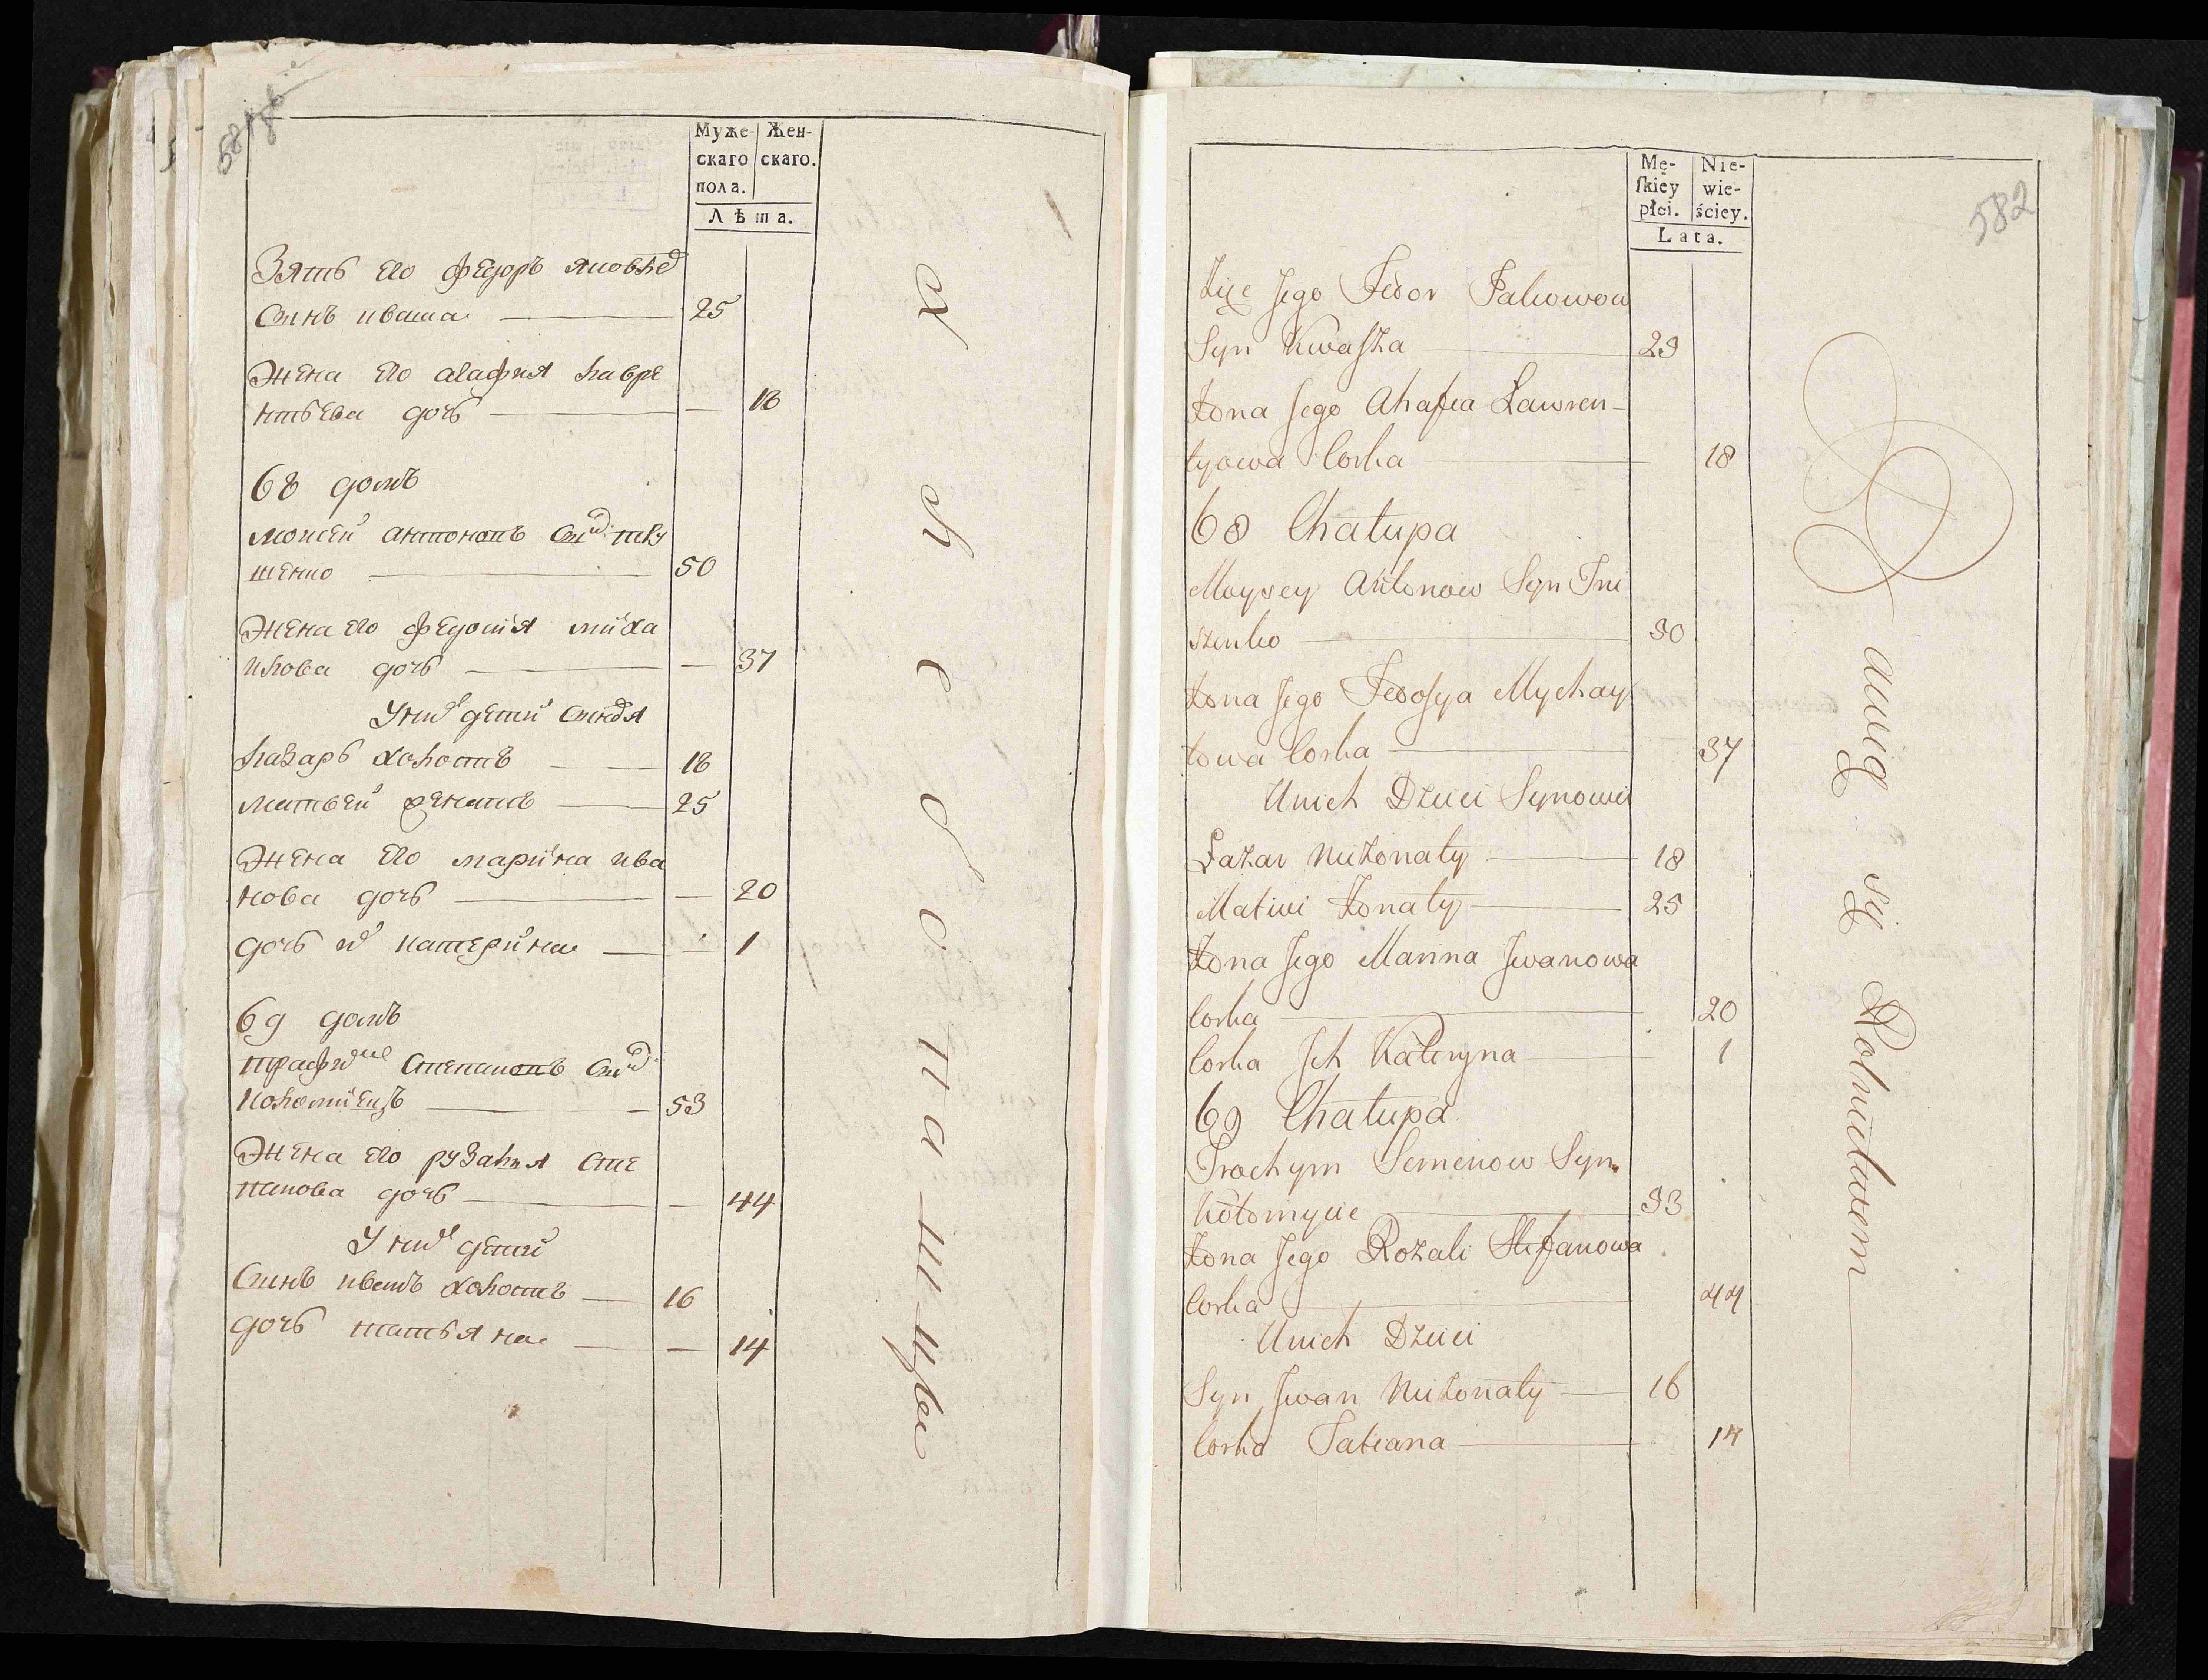 Муже-
скаго
пола.
Жен-
скаго.
Лѣта.
Зять его федоръ
синъ кваша 25
жена его агафия лавре
нтьева дочь 18
68 домъ
моисей антоновъ
шенко 50
жена его федосия миха
илова дочь 37
У них детей
лазарь холостъ 18
матвей женатъ 25
жена его марина ива
нова дочь 20
дочь их катерина 1
69 домъ
Степановъ
коломиецъ 53
жена его рузалия сте
панова дочь 44
У них детей
синъ иванъ холостъ 16
дочь татьяна 14
хлебопашцы
582
Mę-
skiéy
płci.
Nie-
wie-
ściey.
Lata.
Zięc Jego Fedor
Syn Kwaszka 25
Żona Jego Ahafia Ławren-
tyowa Corka 18
68 Chałupa
Moysey Antonow Syn
szenko 50
Żona Jego Fedosya Mychay
łowa Corka 37
Unich Dzieci Synowie
Łazar Nieżonaty 18
Matwi Żonaty 25
Żona Jego Marina Jwanowa
Corka 20
Corka Jch Kateryna 1
69 Chałupa
Trochym Semenow Syn
Kołomyiec 53
Żona Jego Rozali Stefanowa
Corka 44
Unich Dzieci
Syn Jwan Nieżonaty 16
Corka Tatiana 14
Bawią się Rolnictwem